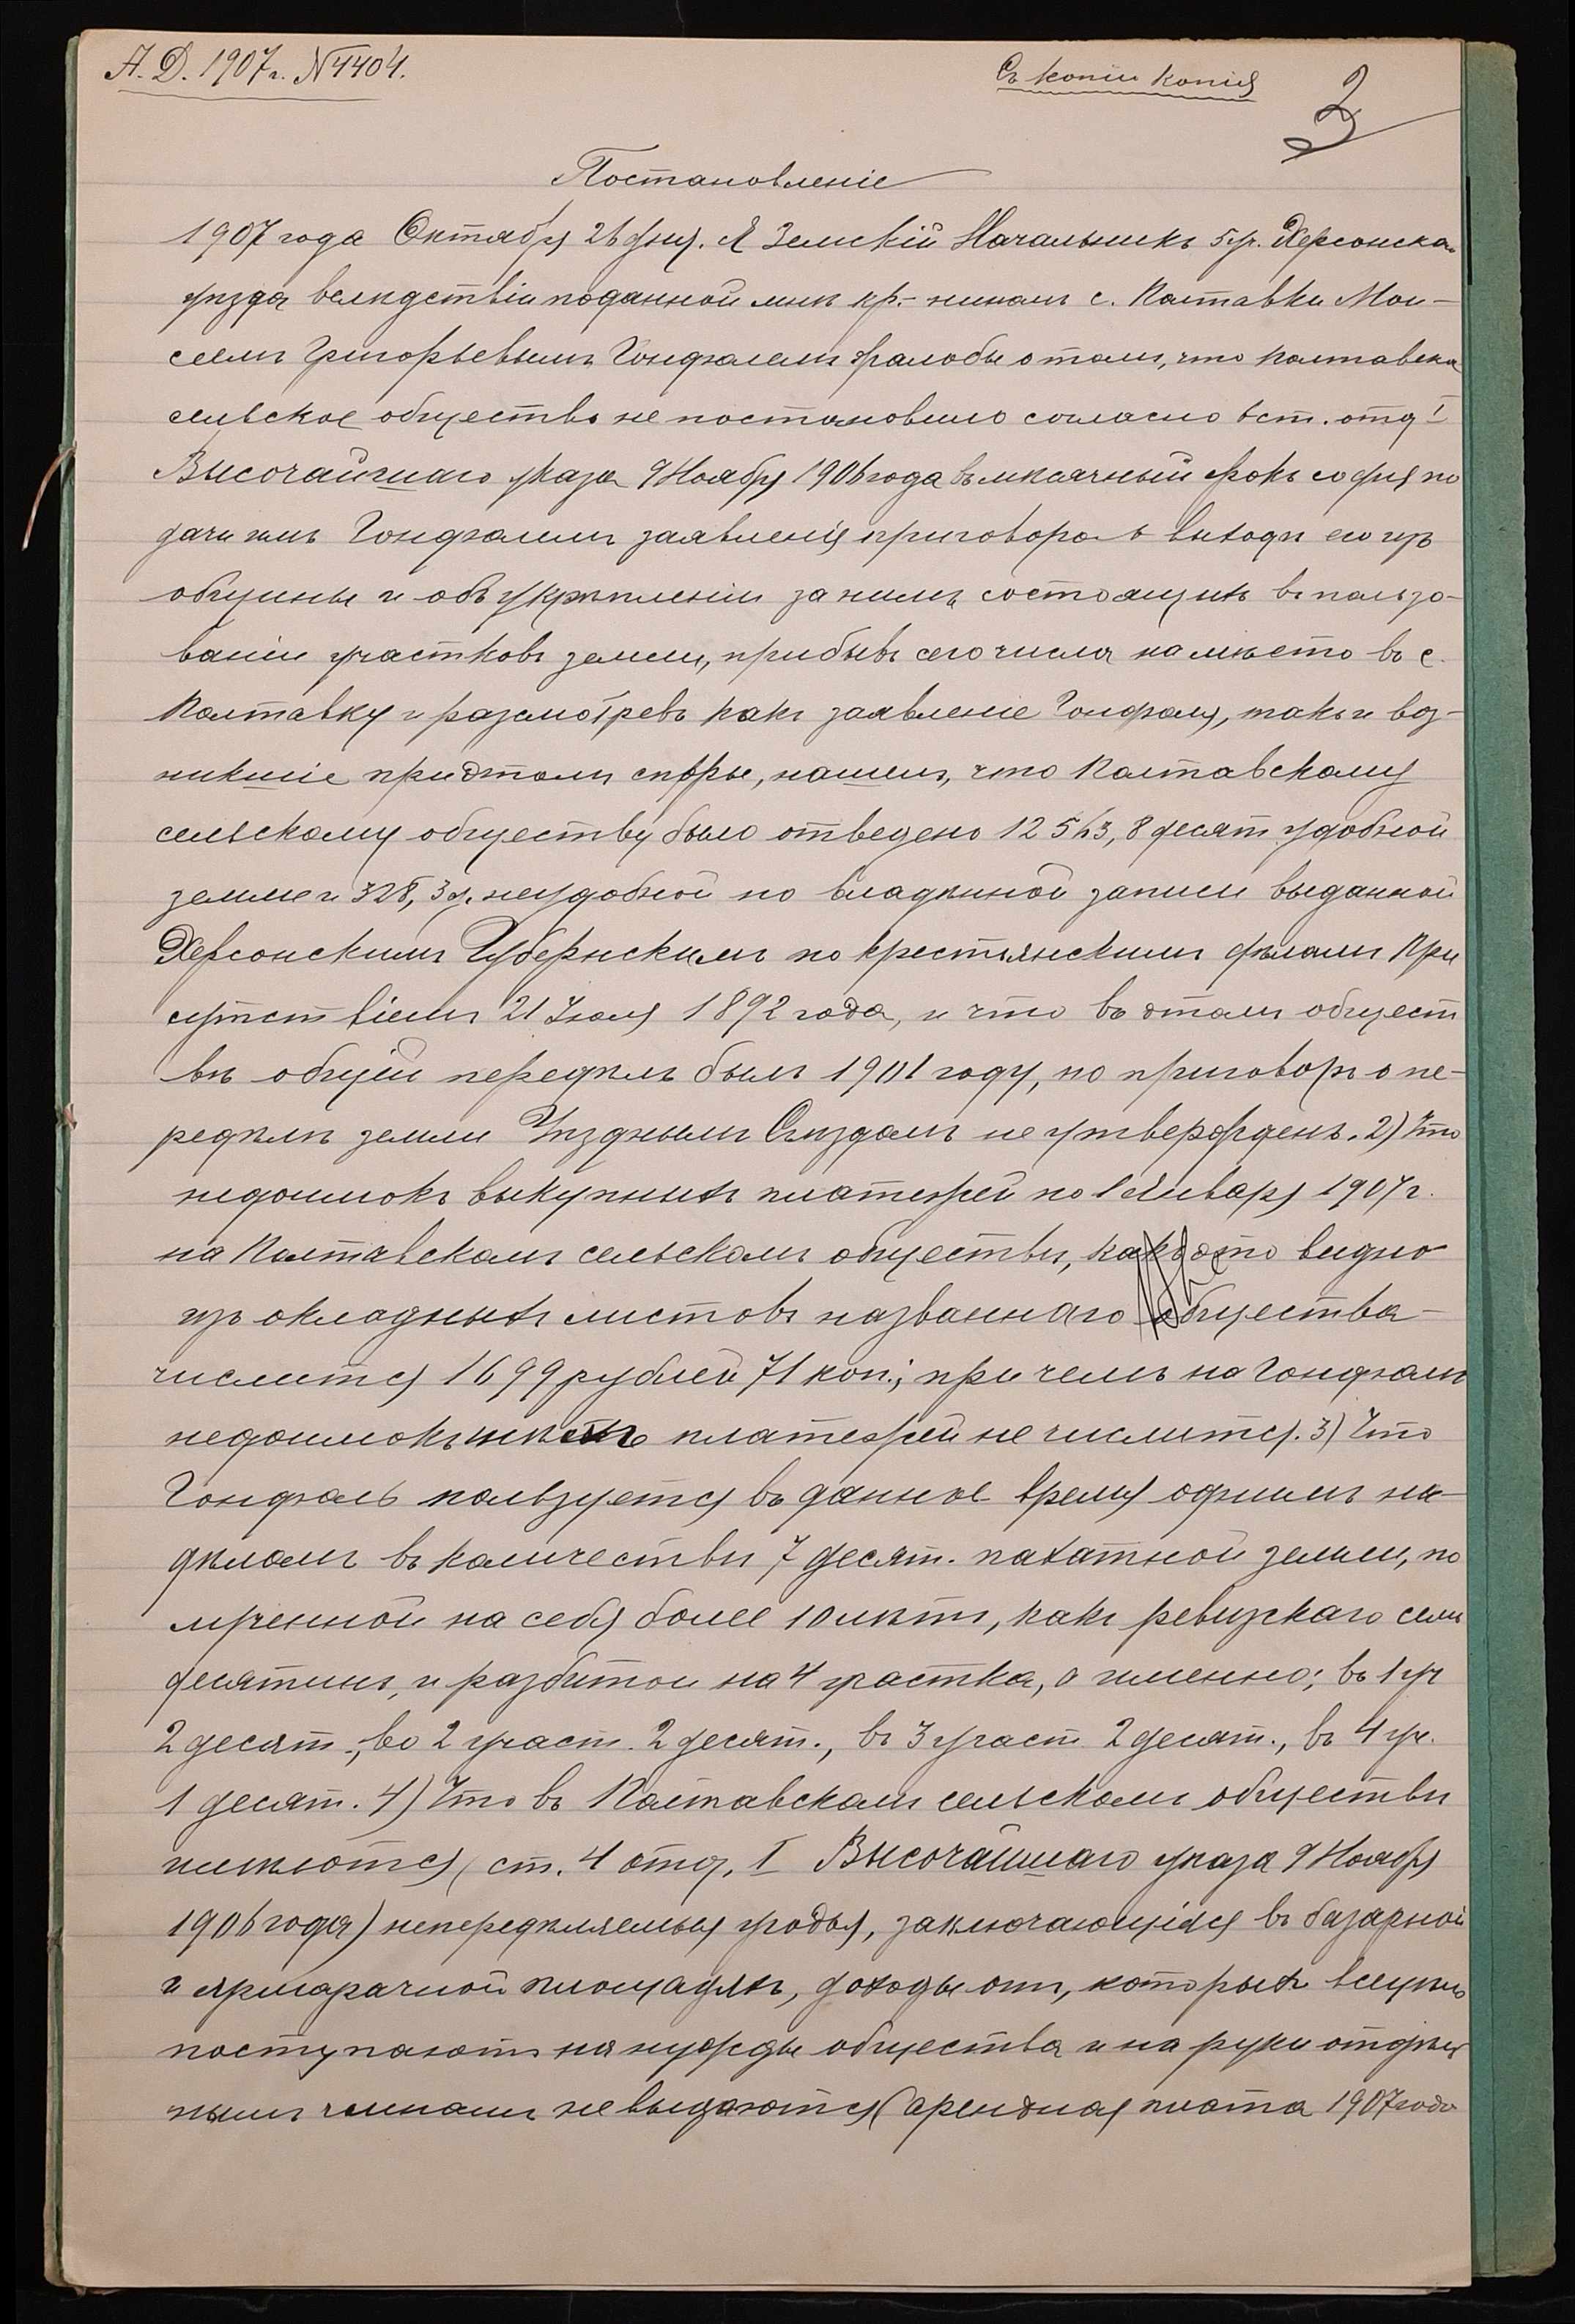 А. Д. 1907 г. № 4404.
Съ копіи копія
2
Постановленіе
1907 года Октября 26 дня. Я Земскій Начальникъ 5 уч. Херсонска
уѣзда вслѣдствіи поданной мнѣ кр.-ниномъ с. Полтавки Мои-
сеемъ Григорьевымъ Гонджалемъ жалобы о томъ, что Полтавска
сельское общество не постановило согласно 6 ст. отд I
Высочайшаго указа 9 Ноября 1906 года въ мѣсячный срокъ со дня по
дачи имъ Гонджалемъ заявленія приговора о выходѣ его изъ
общины и объ укрѣпленіи за нимъ состоящихъ въ пользо-
ваніи участковъ земли, прибывъ сего числа на мѣсто въ с.
Полтавку и разсмотревъ какъ заявленіе Гонджаля, такъ и воз-
никшіе при этомъ споры, нашелъ, что Полтавскому
сельскому обществу было отведено 12563,8 десят удобной
земли и 328,3 д. неудобной по владѣнной записи выданной
Херсонскимъ Губернскимъ по крестьянскимъ дѣламъ При
сутствіемъ 21 Іюля 1892 года, и что въ этомъ общест
вѣ общій передѣлъ былъ 1901 году, но приговоръ о пе-
редѣлѣ земли Уѣзднымъ Съѣздомъ не утвержденъ. 2) Что
недоимокъ выкупныхъ платежей по 1 Января 1907 г.
на Полтавскомъ сельскомъ обществѣ, какъ это видно
изъ окладныхъ листовъ названнаго общества-
числится 1699 рублей 71 коп.; при чемъ на Гонджалѣ
недоимокъ платежей не числится. 3) Что
Гонджаль пользуется въ данное время однимъ на-
дѣломъ въ количествѣ 7 десят. пахатной земли, по
лученной на себя более 10 лѣтъ, какъ ревизскаго семи
десятинъ, и разбитой на 4 участка, а именно; въ 1 уч
2 десят., во 2 участ. 2 десят., въ 3 участ 2 десят., въ 4 уч.
1 десят. 4) Что въ Полтавскомъ сельскомъ обществѣ
имѣются (ст. 4 отд. I Высочайшаго указа 9 Ноября
1906 года) непередѣляемыя угодья, заключающіяся въ базарной
и ярмарачной площадяхъ, доходы отъ, которыхъ всецѣло
поступаютъ на нужды общества и на руки отдѣль
нымъ членамъ не выдаются (арендная плата 1907 года